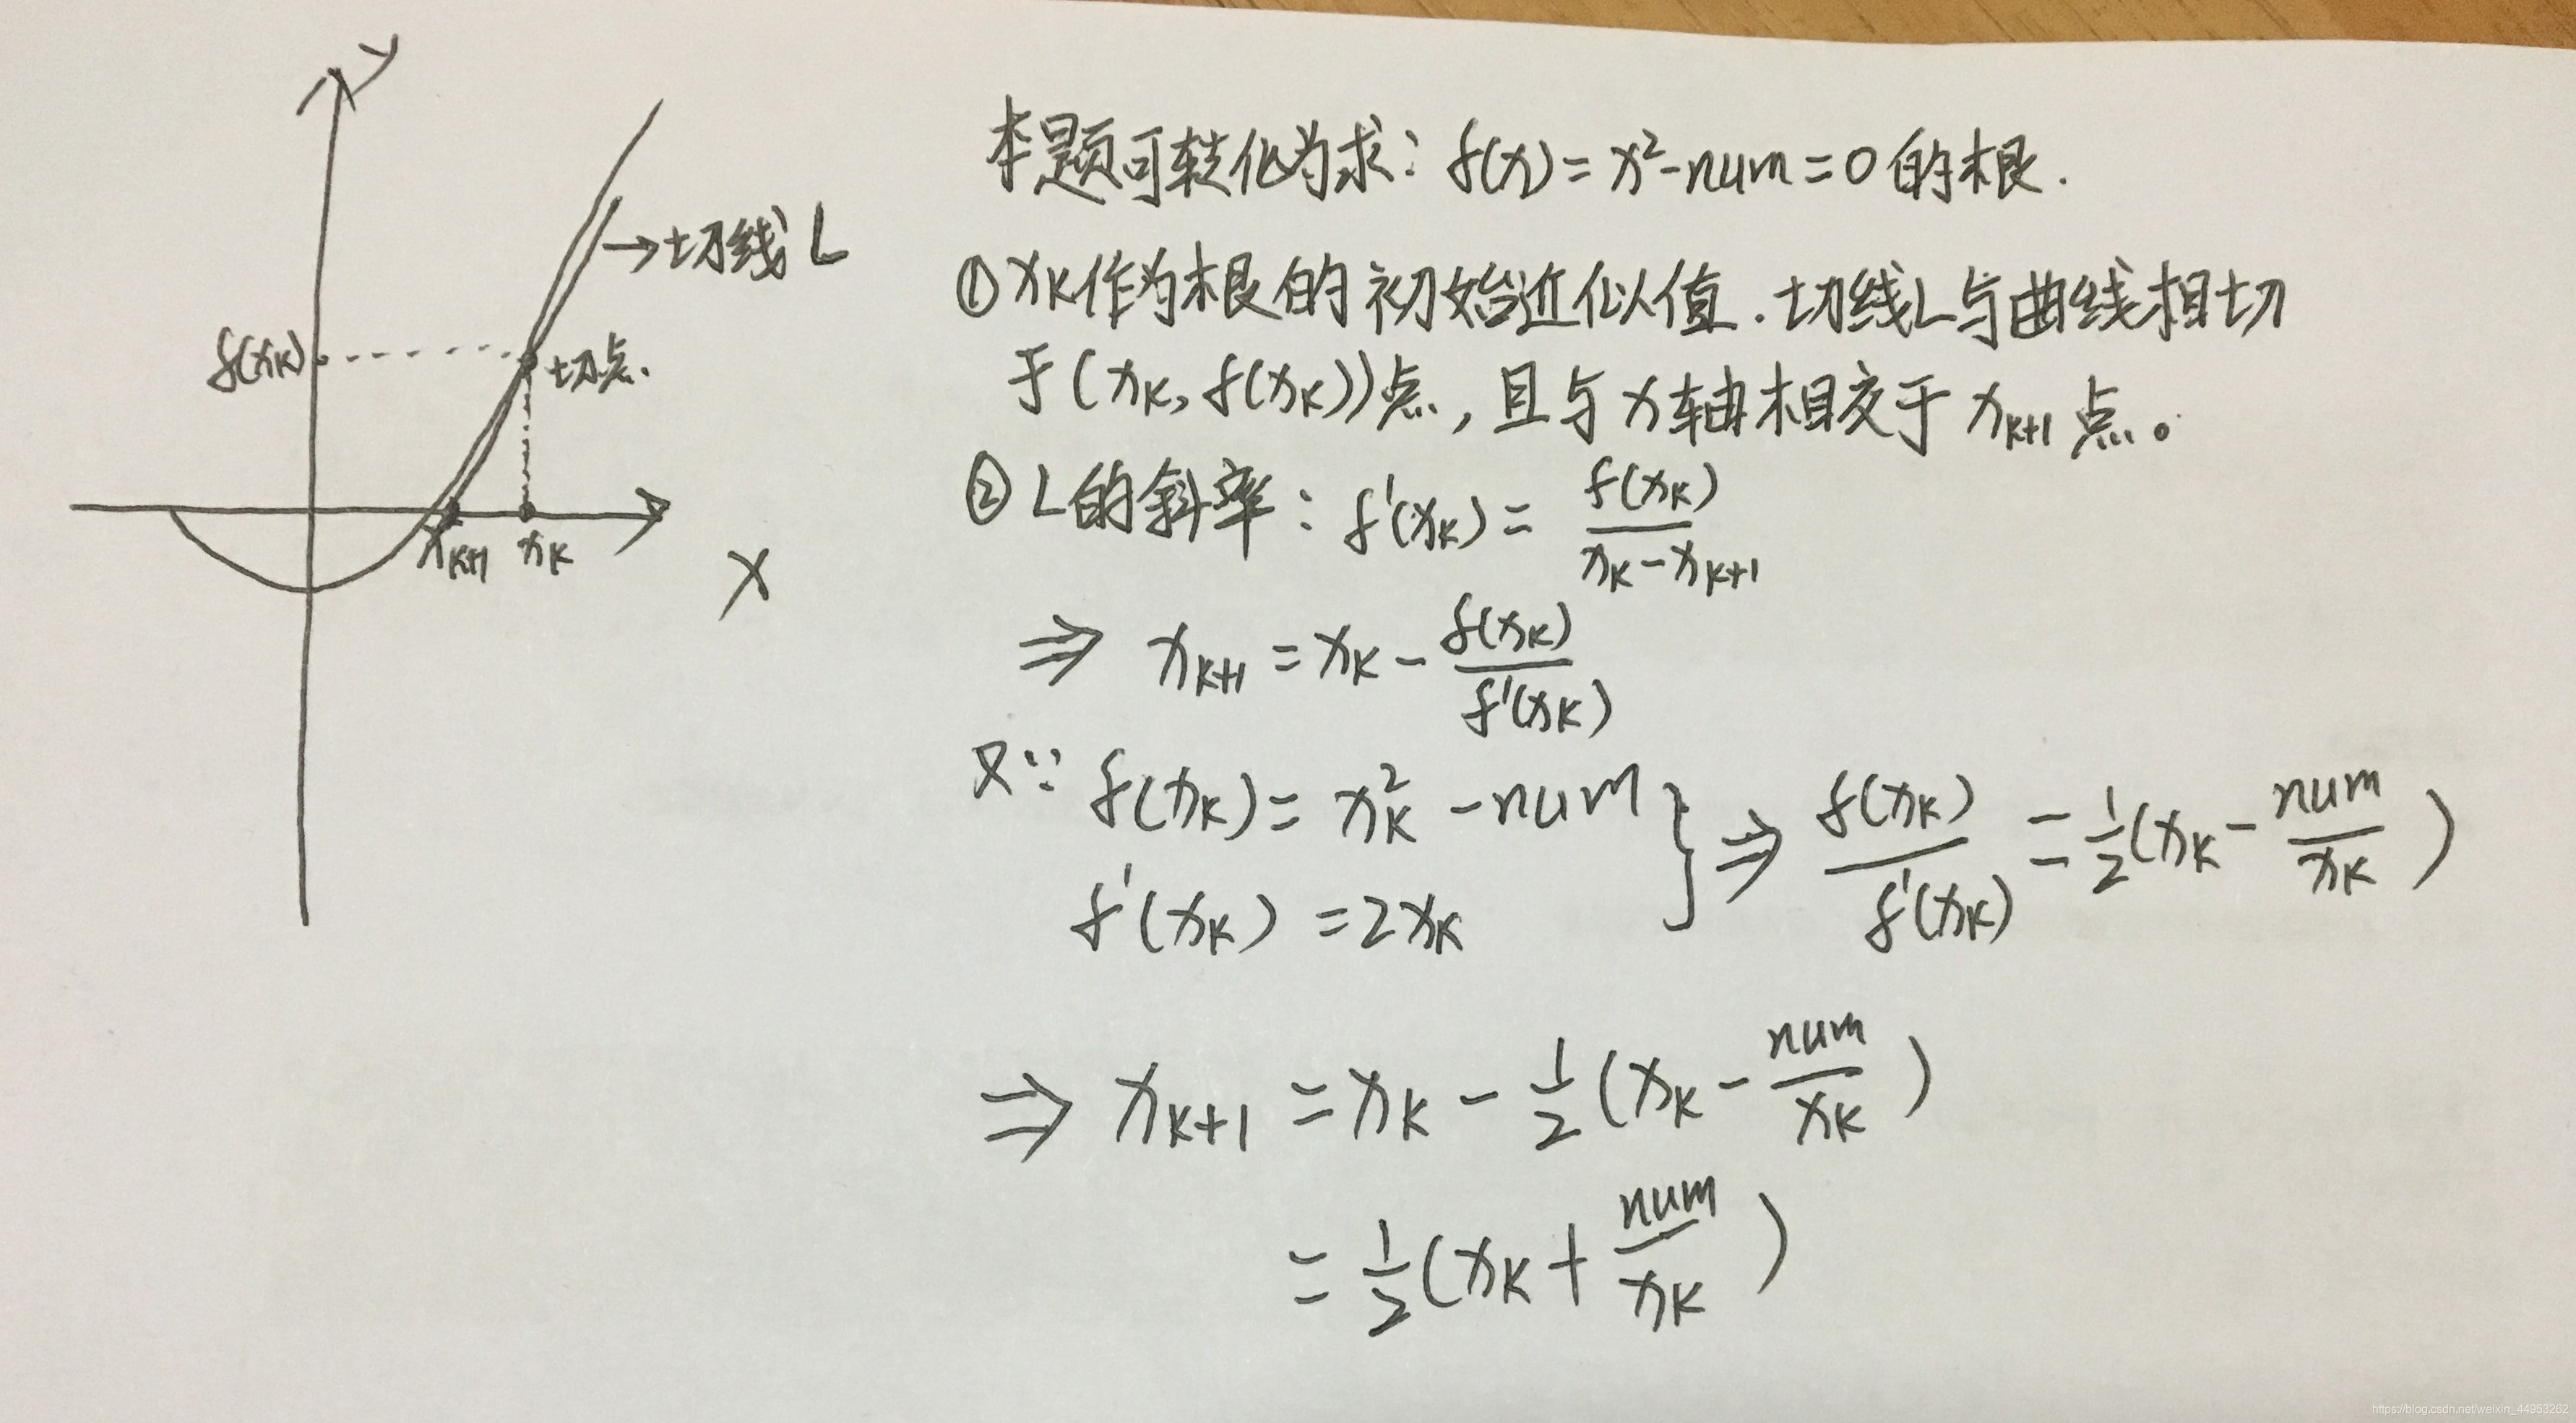 y
切线L
f(xk)
切点.
xk+1 xk
x
本题可转化为求: f(x)=x²-num=0的根.
① xk作为根的初始近似值.切线L与曲线相切
于(xk, f(xk))点,且与x轴相交于xk+1点。
② L的斜率: f'(xk) = f(xk)/(xk-xk+1)
⇒ xk+1 = xk - f(xk)/f'(xk)
又∵ f(xk) = xk² - num
f'(xk) = 2xk
} ⇒ f(xk)/f'(xk) = 1/2(xk - num/xk)
⇒ xk+1 = xk - 1/2(xk - num/xk)
= 1/2(xk + num/xk)
https://blog.csdn.net/weixin_44953262